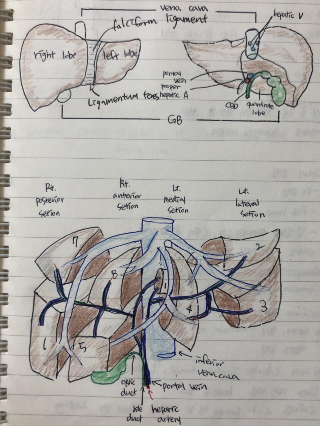 vena cava
falciform
ligament
hepatic V
right lobe
left lobe
portal
vein
proper
hepatic A
Ligamentum teres
CBD
quadrate
lobe
GB
Rt.
posterior
setion
Rt.
anterior
setion
Lt.
medial
setion
Lt.
lateral
setion
7
8
1
2
3
4
6
5
cystic
duct
bile
duct
hepatic
artery
portal vein
inferior
vena cava